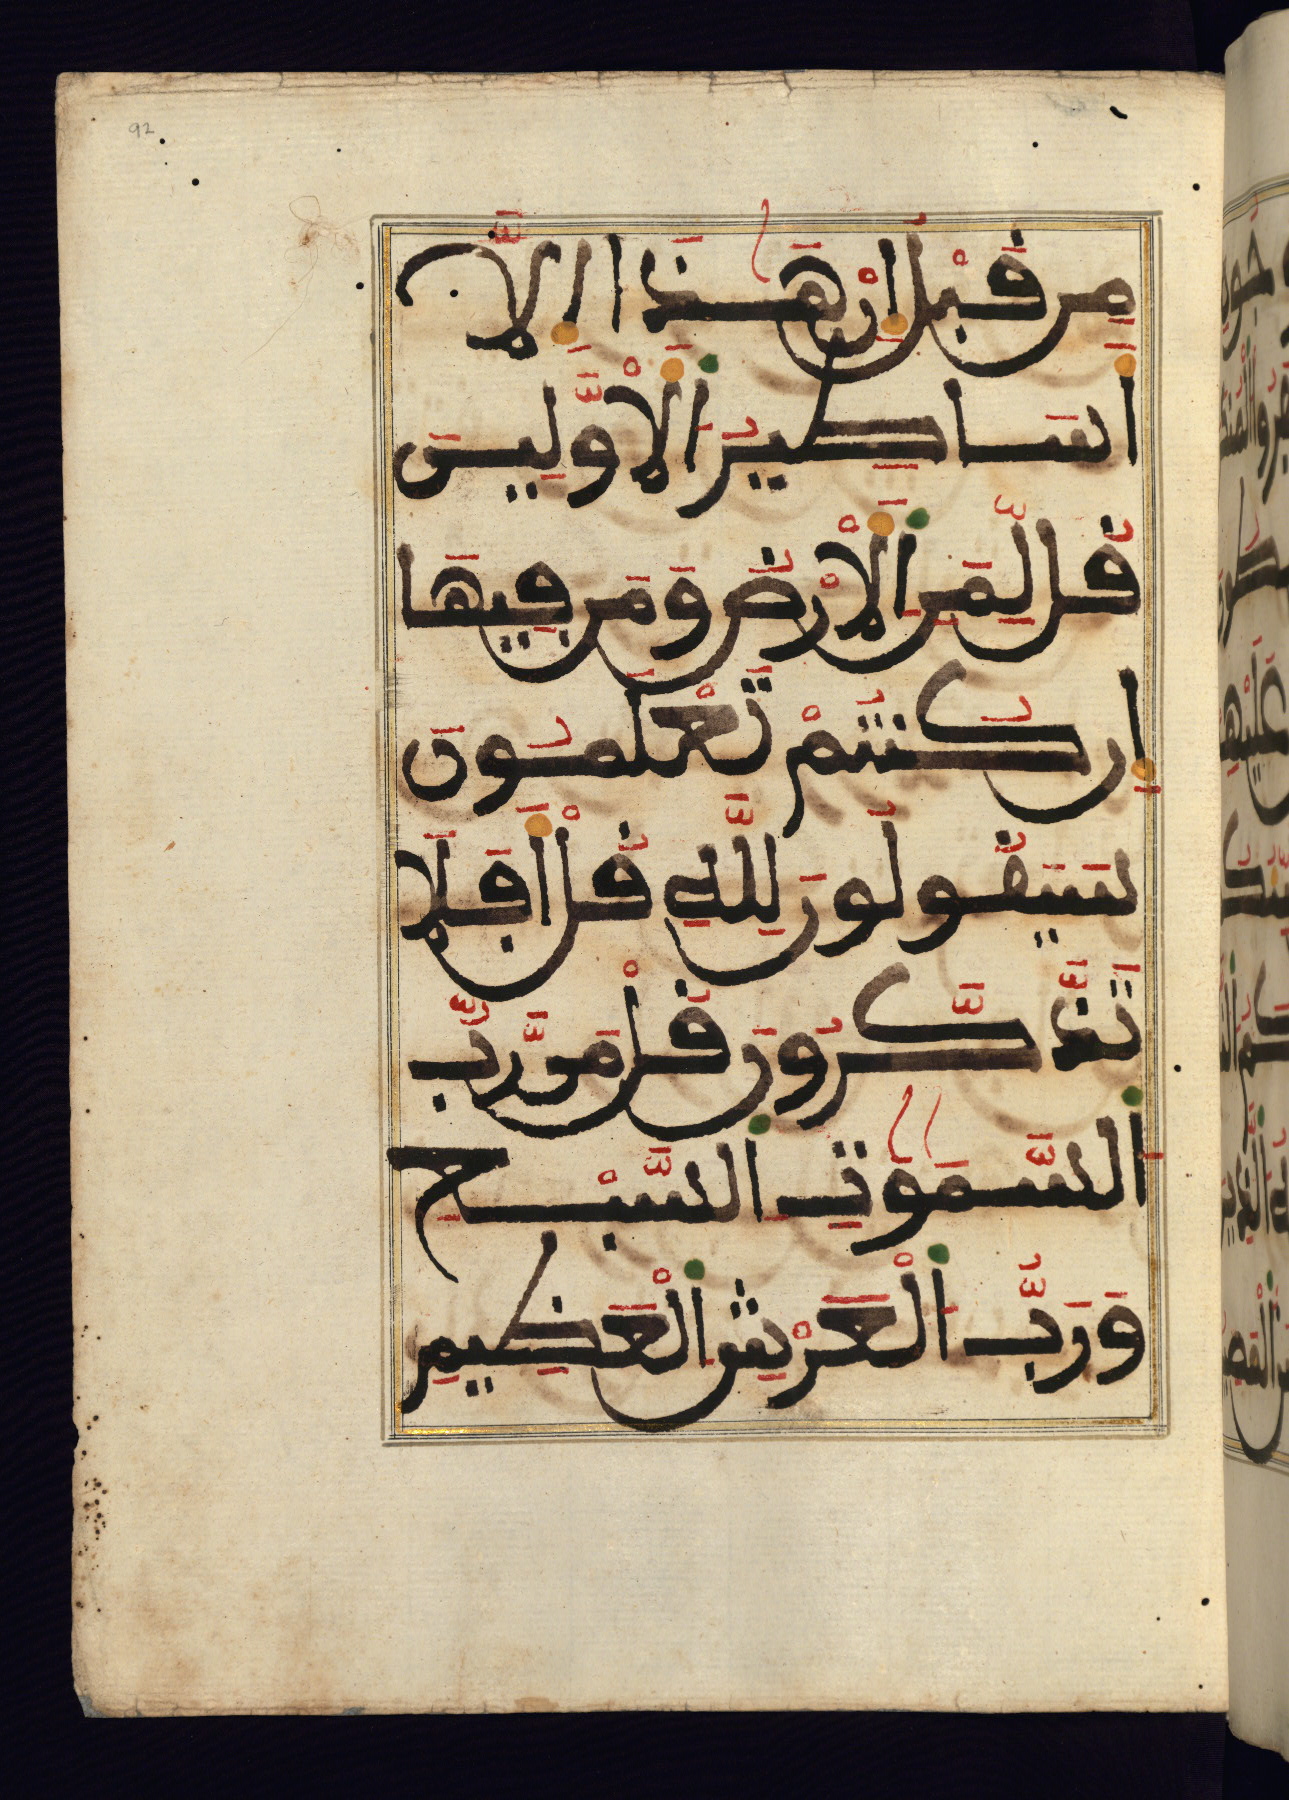 92
مِن قَبْلُ إِنْ هَٰذَا إِلَّا
أَسَاطِيرُ الْأَوَّلِينَ
قُل لِّمَنِ الْأَرْضُ وَمَن فِيهَا
إِن كُنتُمْ تَعْلَمُونَ
سَيَقُولُونَ لِلَّهِ قُلْ أَفَلَا
تَذَّكَّرُونَ قُلْ مَن رَّبُّ
السَّمَٰوَٰتِ السَّبْعِ
وَرَبُّ الْعَرْشِ الْعَظِيمِ